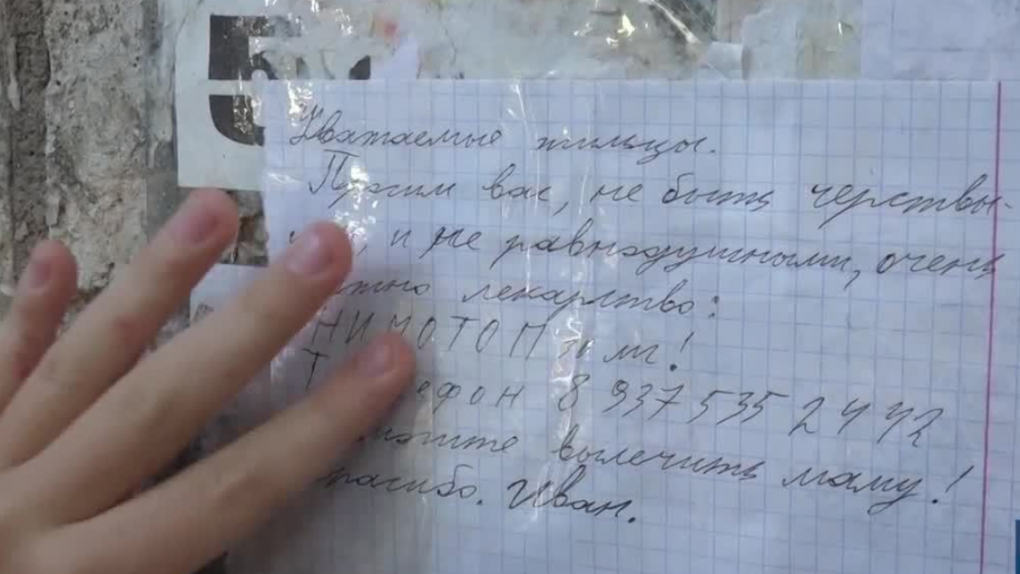 Уважаемые жильцы.
Просим вас, не быть черствы-
, и не равнодушными, очень
лекарство:
НИМОТОП мг!
Телефон 8 937 535 2442
вылечить маму!
Спасибо. Иван.